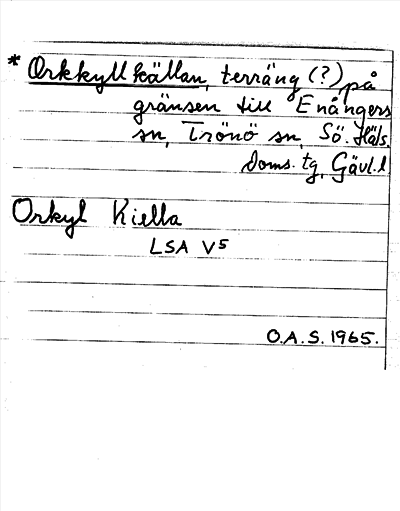 * Orkkyllkällan, terräng (?) på
gränsen till Enångers
sn, Trönö sn, Sö. Häls
doms. tg, Gävl. l
Orkyl Kiella
LSA V5
O.A.S. 1965.